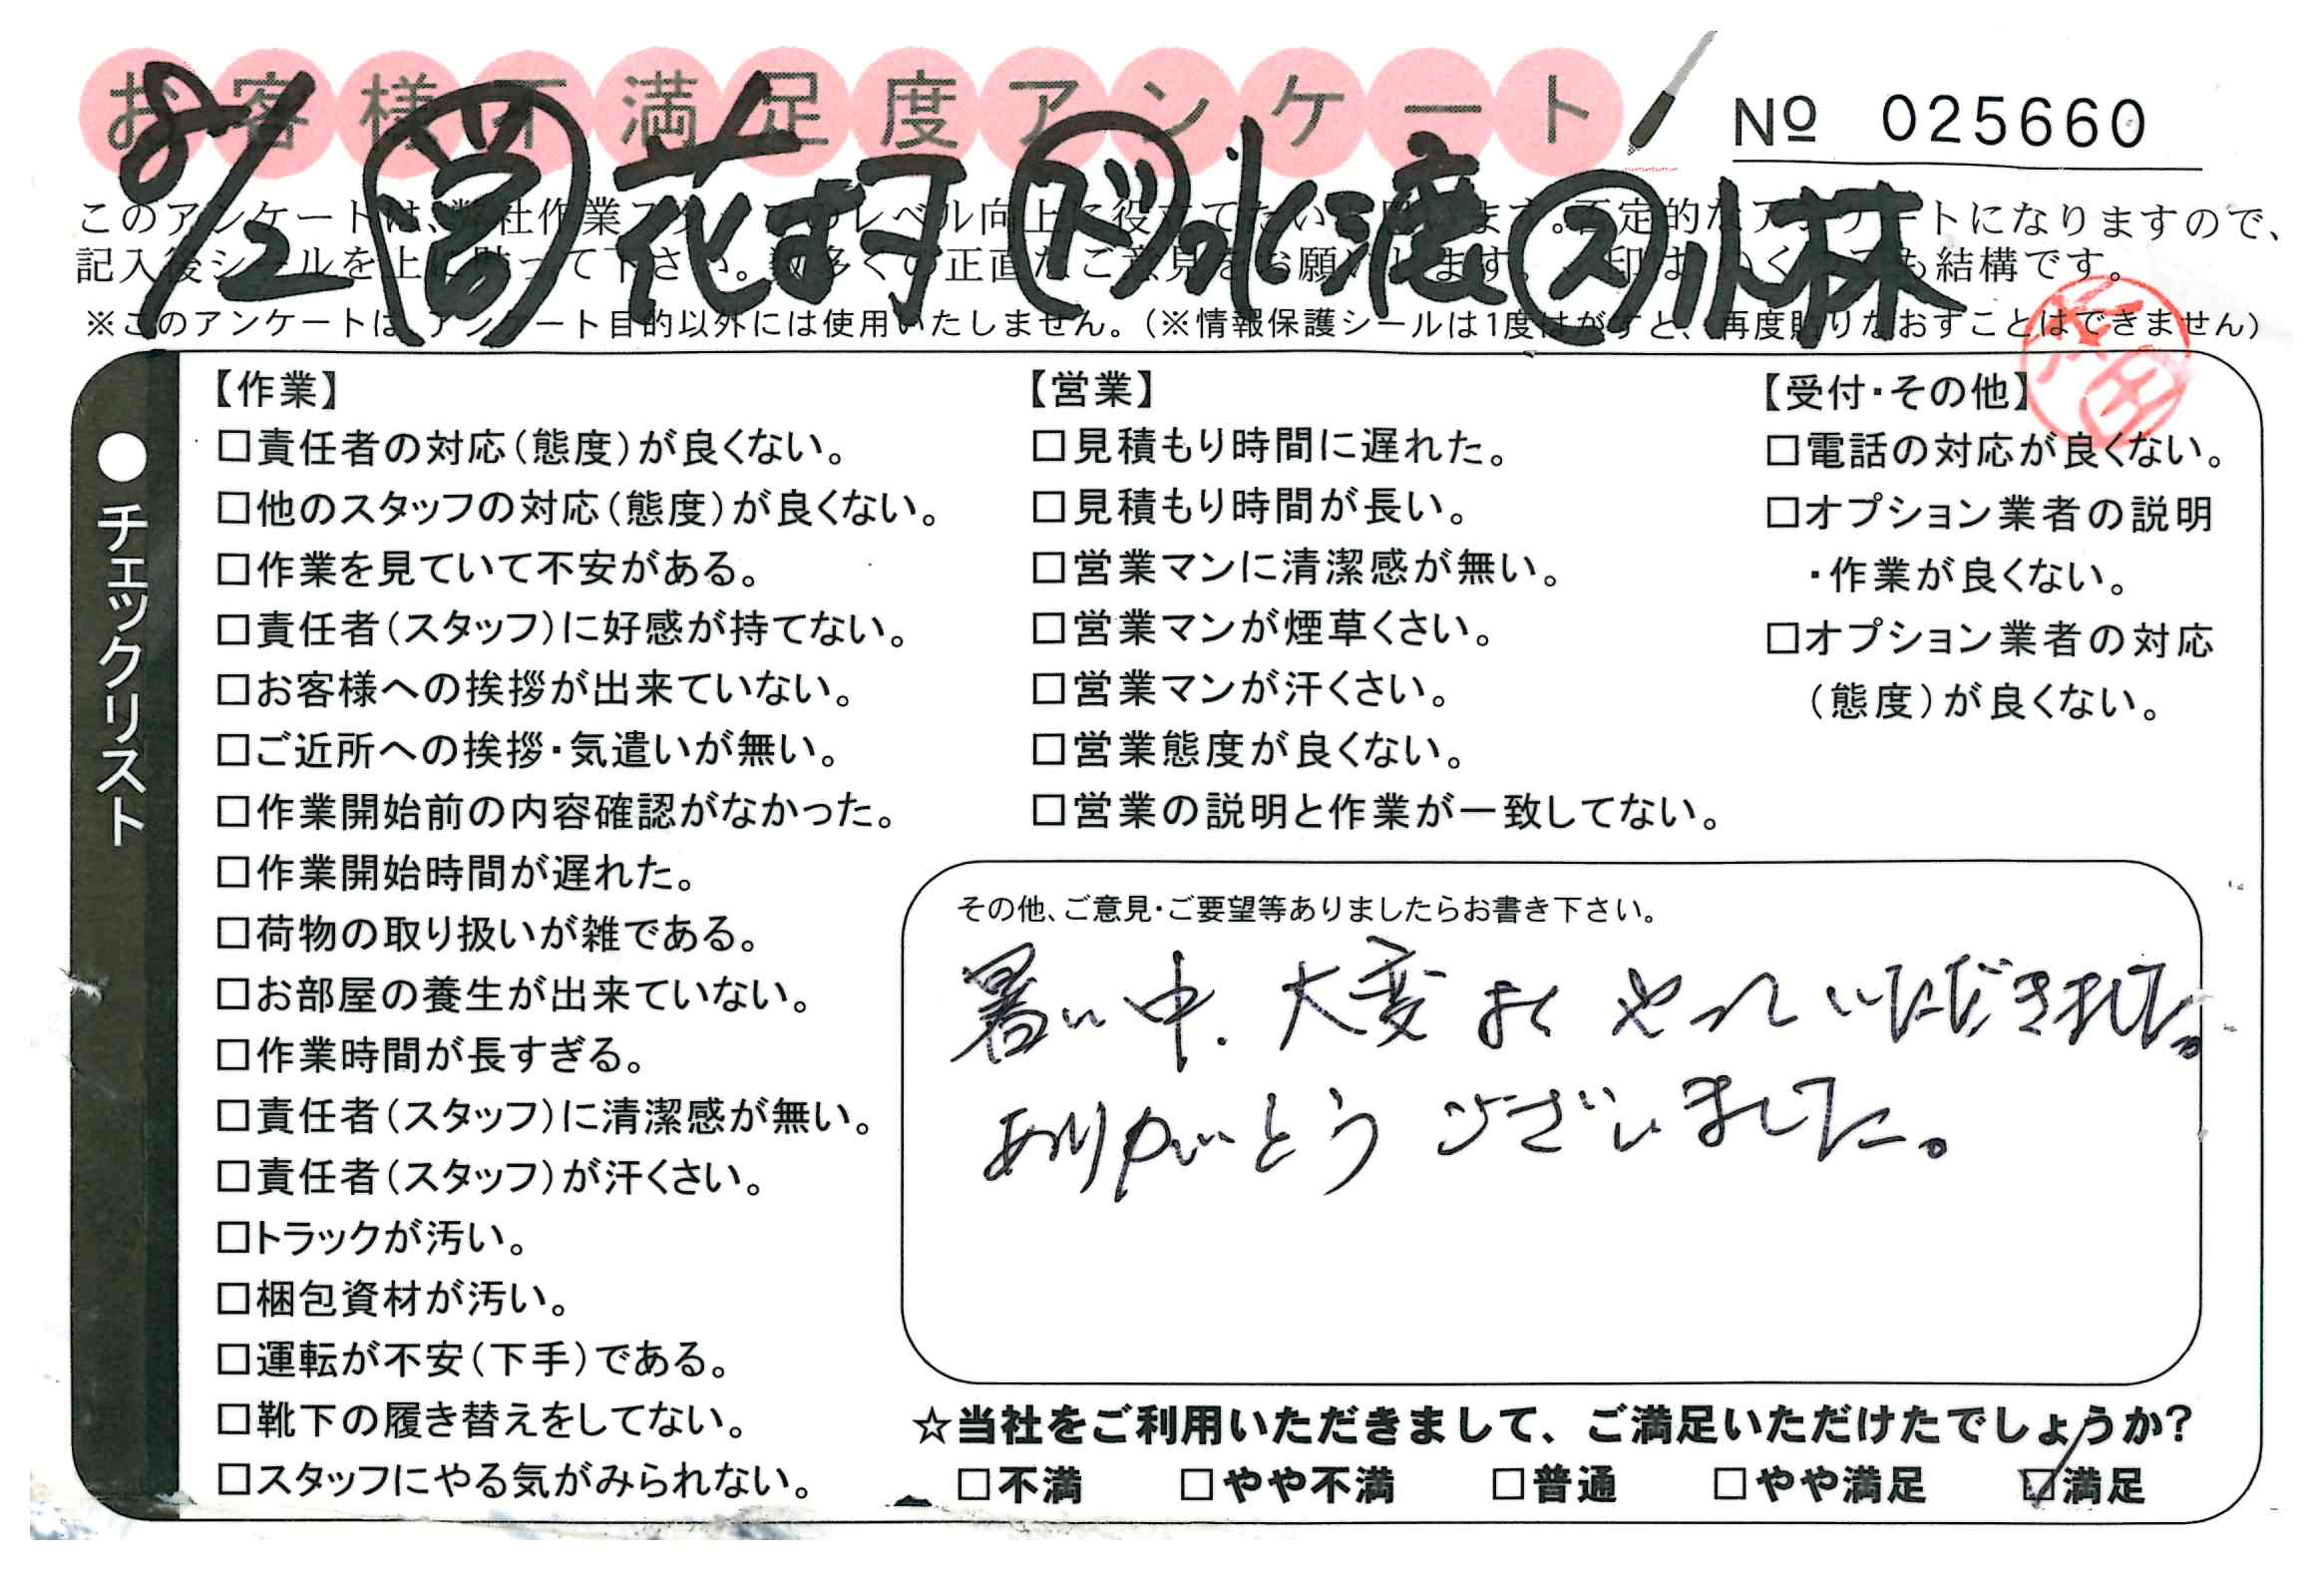 お客様不満足度アンケート
№ 025660
8/2 営 花村 ド 水渡 ス 小林
このアンケートは、弊社作業スタッフのレベル向上に役立てたいと思います。否定的なアンケートになりますので、
記入後シールを上に貼って下さい。数多くの正直なご意見をお願いします。 印は いくつでも結構です。
※このアンケートは、アンケート目的以外には使用いたしません。(※情報保護シールは1度はがすと、再度貼りなおすことはできません)
●チェックリスト
【作業】
□責任者の対応(態度)が良くない。
□他のスタッフの対応(態度)が良くない。
□作業を見ていて不安がある。
□責任者(スタッフ)に好感が持てない。
□お客様への挨拶が出来ていない。
□ご近所への挨拶・気遣いが無い。
□作業開始前の内容確認がなかった。
□作業開始時間が遅れた。
□荷物の取り扱いが雑である。
□お部屋の養生が出来ていない。
□作業時間が長すぎる。
□責任者(スタッフ)に清潔感が無い。
□責任者(スタッフ)が汗くさい。
□トラックが汚い。
□梱包資材が汚い。
□運転が不安(下手)である。
□靴下の履き替えをしてない。
□スタッフにやる気がみられない。
【営業】
□見積もり時間に遅れた。
□見積もり時間が長い。
□営業マンに清潔感が無い。
□営業マンが煙草くさい。
□営業マンが汗くさい。
□営業態度が良くない。
□営業の説明と作業が一致してない。
【受付・その他】
□電話の対応が良くない。
□オプション業者の説明
・作業が良くない。
□オプション業者の対応
(態度)が良くない。
その他、ご意見・ご要望等ありましたらお書き下さい。
暑い中、大変よくやっていただきました。
ありがとうございました。
☆当社をご利用いただきまして、ご満足いただけたでしょうか?
□不満 □やや不満 □普通 □やや満足 ☑満足